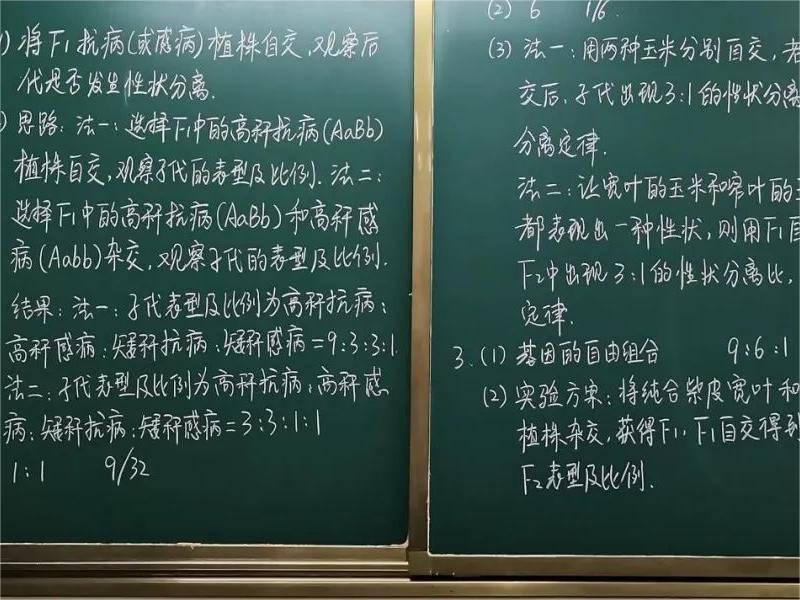 ) 将F1抗病(或感病)植株自交,观察后
代是否发生性状分离.
) 思路:法一:选择F1中的高秆抗病(AaBb)
植株自交,观察子代的表型及比例.法二:
选择F1中的高秆抗病(AaBb)和高秆感
病(Aabb)杂交,观察子代的表型及比例.
结果:法一:子代表型及比例为高秆抗病:
高秆感病:矮秆抗病:矮秆感病=9:3:3:1.
法二:子代表型及比例为高秆抗病:高秆感
病:矮秆抗病:矮秆感病=3:3:1:1
1:1 9/32
(2) 6 1/6.
(3) 法一:用两种玉米分别自交,若
交后,子代出现3:1的性状分离
分离定律.
法二:让宽叶的玉米和窄叶的玉
都表现出一种性状,则用F1自
F2中出现3:1的性状分离比,
定律.
3.(1) 基因的自由组合 9:6:1
(2) 实验方案:将纯合紫皮宽叶和
植株杂交,获得F1,F1自交得到
F2表型及比例.